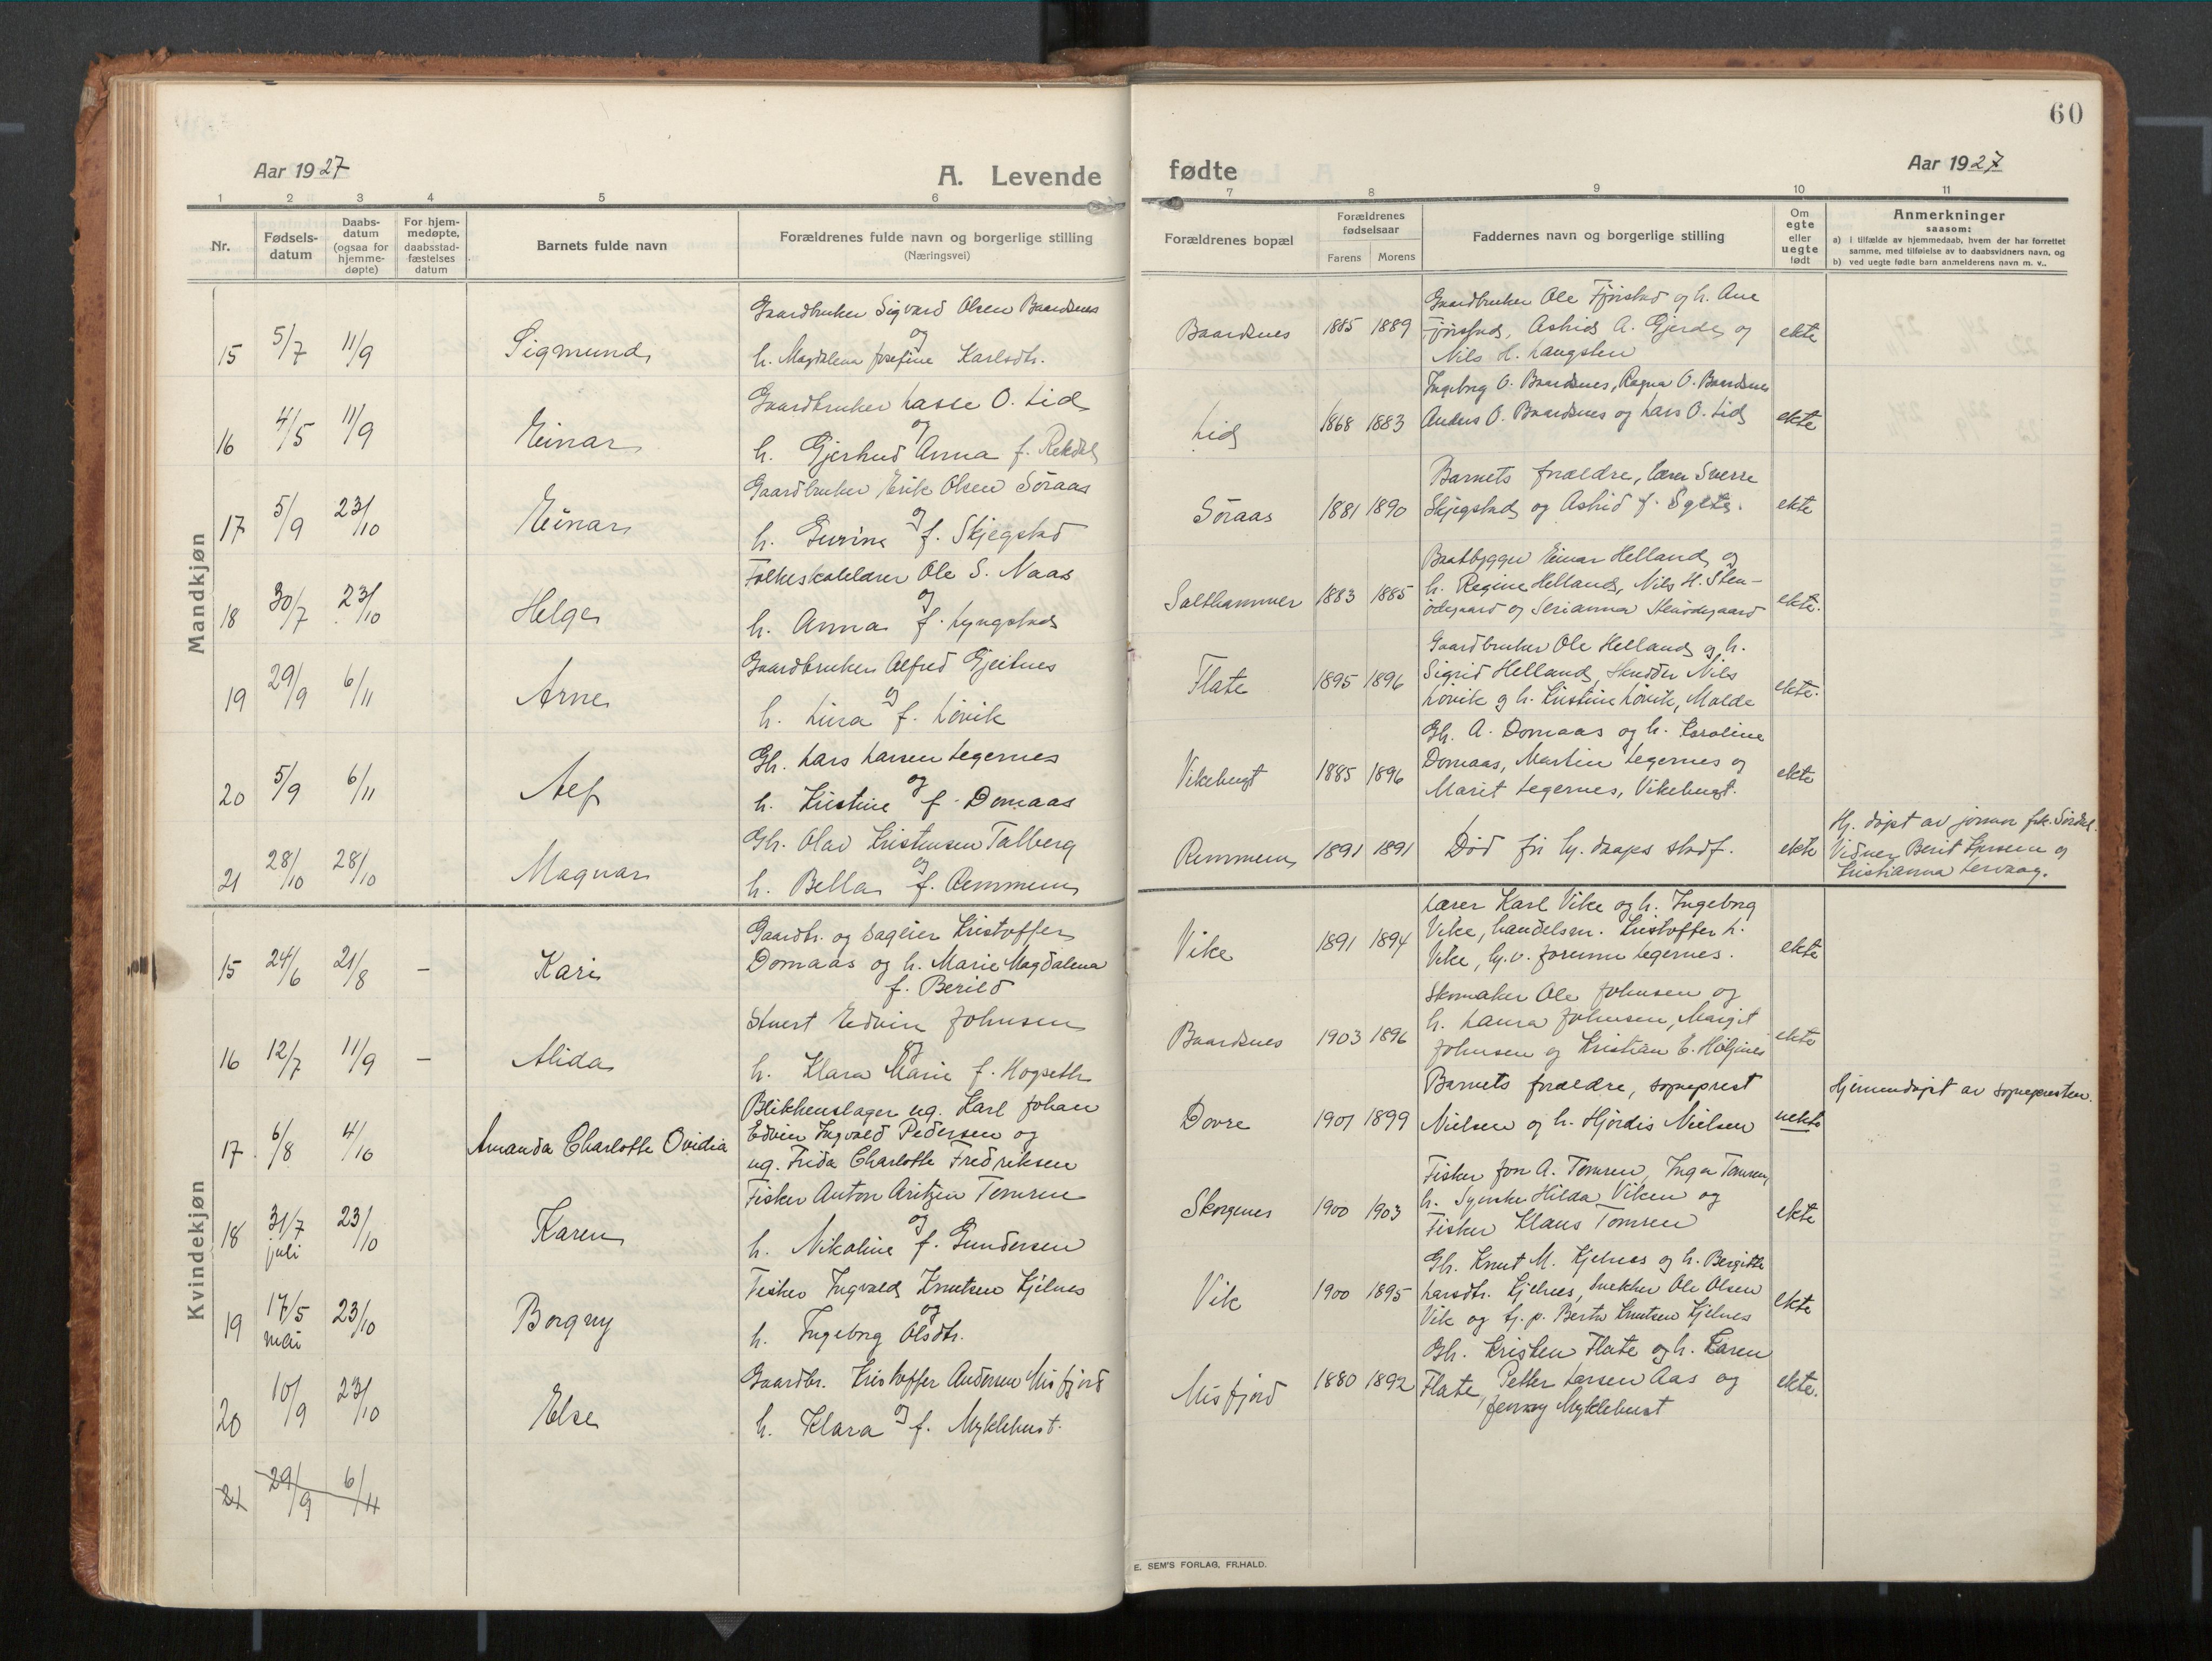 60
Aar 1927
A. Levende
fødte
Aar 1927
1 2 3 4 5 6 7 8 9 10 11
Nr.
Fødsels-
datum
Daabs-
datum
(ogsaa for
hjemme-
døpte)
For hjem-
medøpte,
daabsstad-
fæstelses
datum
Barnets fulde navn
Forældrenes fulde navn og borgerlige stilling
(Næringsvei)
Forældrenes bopæl
Forældrenes
fødselsaar
Farens Morens
Faddernes navn og borgerlige stilling
Om
egte
eller
uegte
født
Anmerkninger
saasom:
a) i tilfælde av hjemmedaab, hvem der har forrettet
samme, med tilføielse av to daabsvidners navn, og
b) ved uegte fødte barn anmelderens navn m. v..
Mandkjøn
15 5/7 11/9 Sigmund
Gaardbruker Sigvard Olsen Baardsnes
og
h. Magdalena Josefine Karlsdtr.
Baardsnes 1885 1889
Gaardbruker Ole Fjørstad og h. Ane
Fjørstad, Astrid A. Gjerde og
Nils H. Langslen
ekte
16 4/5 11/9 Einar
Gaardbruker Lasse O. Lid
og
h. Gjerhud Anna f. Rekdal
Lid 1868 1883
Ingeborg O. Baardsnes, Ragna O. Baardsnes
Anders O. Baardsnes og Lars O. Lid
ekte
17 5/9 23/10 Einar
Gaardbruker Erik Olsen Søraas
og
h. Gurine f. Skjegstad
Søraas 1881 1890
Barnets forældre, lærer Sverre
Skjegstad og Astrid f.
ekte
18 30/7 23/10 Helge
Folkeskolelærer Ole S. Naas
og
h. Anna f. Lyngstad
Salthammer 1883 1885
Baatbygger Einar Helland og
h. Regine Helland, Nils H. Sten-
ødegaard og Serianna Stenødegaard
ekte.
19 29/9 6/11 Arne
Gaardbruker Alfred Gjeitnes
og
h. Lina f. Løvik
Flate 1895 1896
Gaardbruker Ole Helland og h.
Sigrid Helland, Skrædder Nils
Løvik og h. Kristine Løvik, Molde
ekte.
20 5/9 6/11 Alf
Gbr. Lars Larsen Legernes
og
h. Kristine f. Domaas
Vikebugt 1885 1896
Gbr. A. Domaas og h. Karoline
Domaas, Martin Legernes og
Marit Legernes, Vikebugt.
ekte
21 28/10 28/10 Magnar
Gbr. Olav Kristensen Talberg
og
h. Bella f. Remmem
Remmem 1891 1891
Død før hj. daaps stadf.
ekte
Hj. døpt av jormor frk. Sørdal.
Vidner Berit og
Kristianna Lervaag.
Kvindekjøn
15 24/6 21/8 – Kari
Gaardbr. og sageier Kristoffer
Domaas og h. Marie Magdalena
f. Berild
Vike 1891 1894
Lærer Karl Vike og h. Ingeborg
Vike, handelsm. Kristoffer L.
Vike, Legernes.
ekte
16 12/7 11/9 – Alida
Stuert Edvin Johnsen
og
h. Klara Marie f. Hogseth
Baardsnes 1903 1896
Skomaker Ole Johnsen og
h. Laura Johnsen, Margit
Johnsen og Kristian E.
ekte
17 6/8 4/10 Amanda Charlotte Ovidia
Blikkenslager ug. Karl Johan
Edvin Ingvald Pedersen og
ug. Frida Charlotte Fredriksen
Dovre 1901 1899
Barnets forældre, sogneprest
Nielsen og h. Hjørdis Nielsen
uekte
Hjemmedøpt av sognepresten.
18 31/7 23/10 Karen
juli
Fisker Anton Tomren
og
h. Nikoline f. Gundersen
Skorgenes 1900 1903
Fisker Jon A. Tomren, Inga Tomren,
h. Hilda Viken og
Fisker Klaus Tomren
ekte
19 17/5 23/10 Borgny
mai
Fisker Ingvald Knutsen Kjelnes
og
h. Ingeborg Olsdtr.
Vik 1900 1895
Gbr. Knut M. Kjelnes og h. Bergitte
Larsdtr. Kjelnes, Snekker Ole Olsen
Vik og tj. p. Berta Knutsen Kjelnes
ekte
20 10/9 23/10 Else
Gaardbr. Kristoffer Andersen Misfjord
og
h. Klara f. Myklebust.
Misfjord 1880 1892
Gbr. Kristen Flate og h. Karen
Flate, Petter Larsen Aas og
Jenny Myklebust
ekte.
21 29/9 6/11
E. SEM'S FORLAG, FR.HALD.